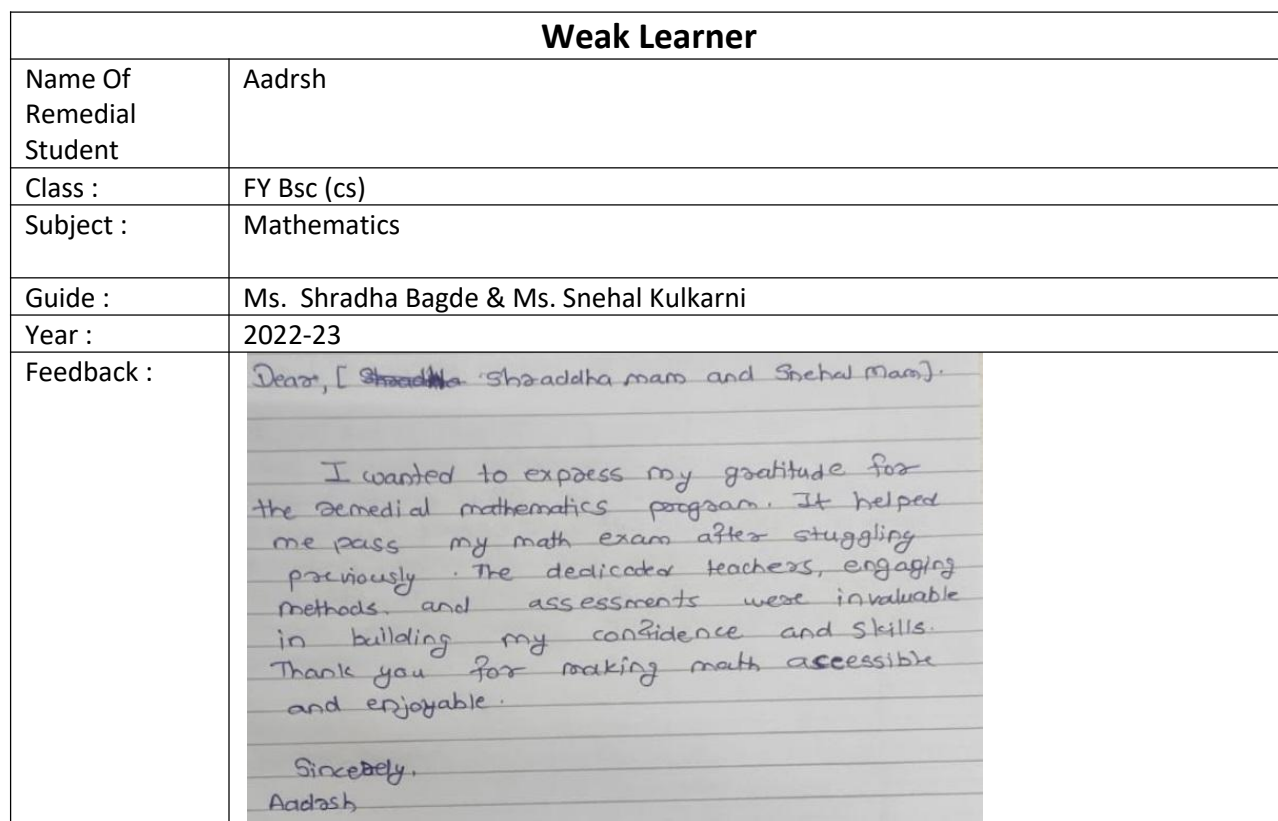 Weak Learner
Name Of
Remedial
Student
Aadrsh
Class :
FY Bsc (cs)
Subject :
Mathematics
Guide :
Ms. Shradha Bagde & Ms. Snehal Kulkarni
Year :
2022-23
Feedback :
Dear, [ Shraddha mam and Snehal Mam].
I wanted to express my gratitude for
the remedial mathematics program. It helped
me pass my math exam after stuggling
previously. The dedicated teachers, engaging
methods. and assessments were invaluable
in building my confidence and skills.
Thank you for making math accessible
and enjoyable.
Sincerely,
Aadrsh